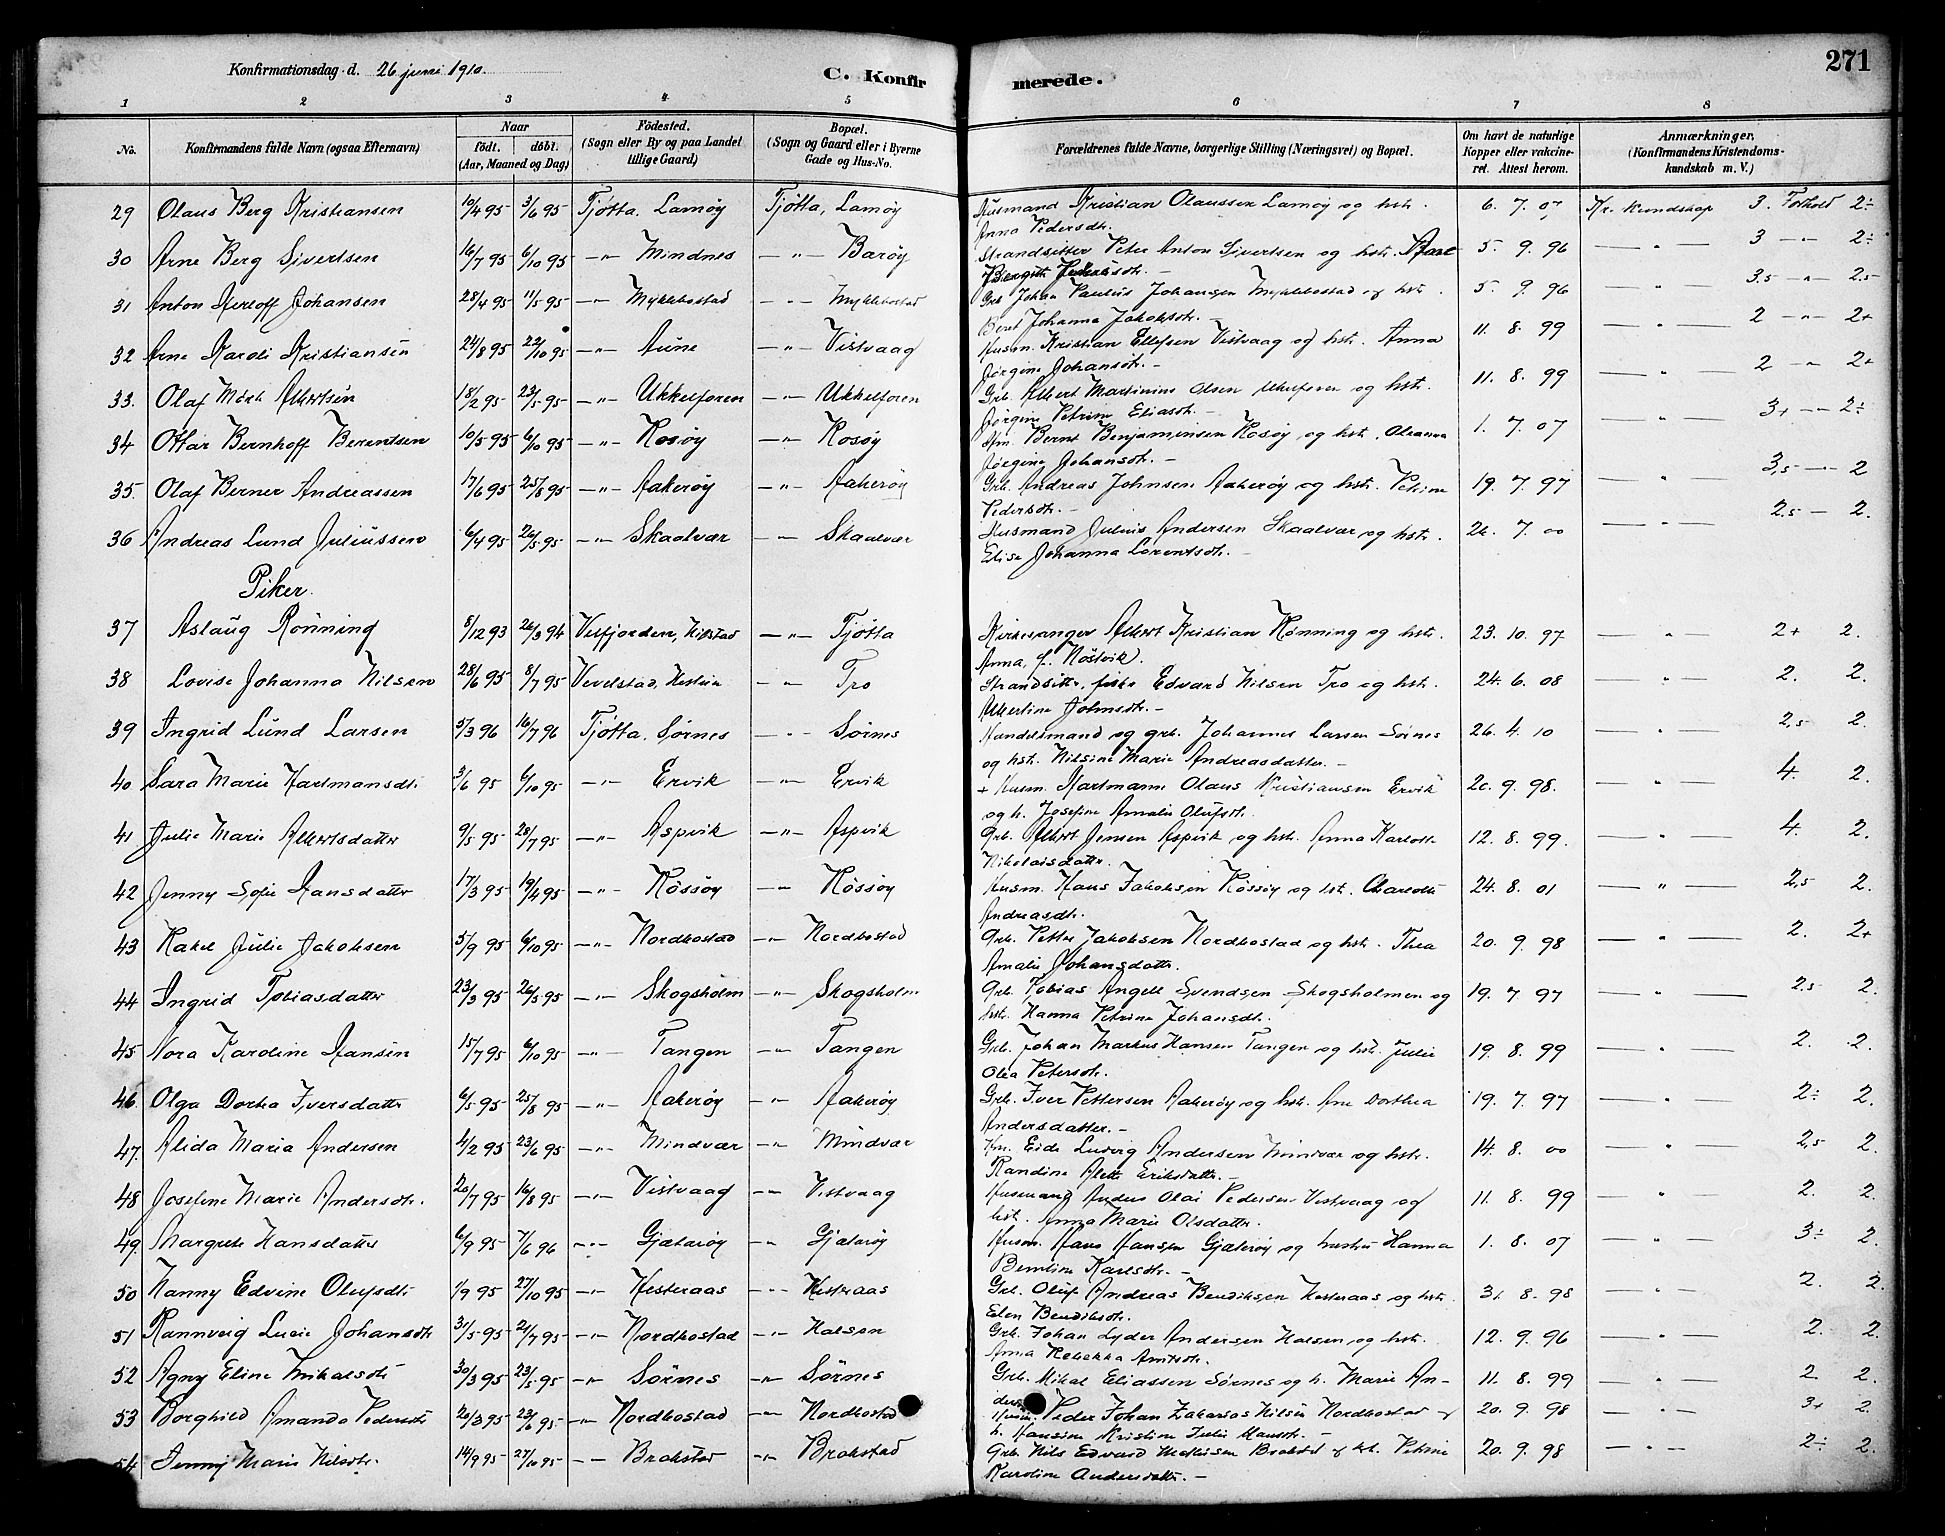 Konfirmationsdag d. 26 juni 1910. C. Konfirmerede. 271
1 2 3 4 5 6 7 8
No. Konfirmandens fulde Navn (ogsaa Efternavn) Naar født. døbt. (Aar, Maaned og Dag) Födested. (Sogn eller By og paa Landet tillige Gaard) Bopæl. (Sogn og Gaard eller i Byerne Gade og Hus-No. Forældrenes fulde Navne, borgerlige Stilling (Næringsvei) og Bopæl. Om havt de naturlige Kopper eller vakcineret. Attest herom. Anmærkninger. (Konfirmandens Kristendomskundskab m. V.)
29 Olaus Berg Kristiansen 10/4 95 3/6 95 Tjøtta, Lamøy Tjøtta, Lamøy Husmand Kristian Olaussen Lamøy og hst. 6. 7. 07 Kr. kundskap 3. Forhold 2÷
Anna Pedersdtr.
30 Arne Berg Sivertsen 16/7 95 6/10 95 -"- Mindnes -"- Barøy Strandsitter Peter Anton Sivertsen og hst. 5. 9. 96 — " — 3 -"- 2÷
31 Anton Johansen 28/4 95 11/5 95 -"- Mykkebostad -"- Mykkebostad Grb. Johan Paulus Johansen Mykkebostad og hst. 5. 9. 96 — " — 3,5 -"- 2,5
Beret Johanna Jakobsdtr. -
32 Arne Karoli Kristiansen 24/8 95 22/10 95 -"- Aune -"- Vistvaag Husm. Kristian Ellefsen Vistvaag og hst. Anna 11. 8. 99 — " — 2 -"- 2+
Jørgine Johansdtr. -
33. Olaf Albertsen 18/2 95 23/5 95 -"- Ukkelforen -"- Ukkelforen Grb. Albert Martinius Olsen og hst. 11. 8. 99 — " — 2 -"- 2+
Jørgine Petrine Eliasdtr. -
34 Ottar Bernhoff Berentsen 10/5 95 6/10 95 -"- Rosøy -"- Rosøy Bernt Benjaminsen Rosøy og hst. 1. 7. 07 — " — 3+ -- 2÷
Jørgine Johansdtr. -
35. Olaf Berner Andreassen 17/6 95 25/8 95 -"- Aakerøy -"- Aakerøy Grb. Andreas Johnsen Aakerøy og hst. Petrine 19. 7. 97 — " — 3,5 -- 2
Pedersdtr. -
36 Andreas Lund Juliussen 6/4 95 26/5 95 -"- Skaalvær -"- Skaalvær Husmand Julius Andersen Skaalvær og hst. 26. 7. 00 — " — 2,5 - 2.
Elise Johanna Lorentsdtr. -
Piker.
37 Aslaug Rønning 8/12 93 26/3 94 Vefsfjorden, -"- Tjøtta Kirkesanger Albert Kristian Rønning og hst. 23. 10. 97 — " — 2+ 2.
Anna, f. Nøstvik.
38 Lovise Johanna Nilsen 28/6 95 8/7 95 Vevelstad, -"- Tro Strandsitter, fisker Edvard Nilsen Tro og hst. 24. 6. 08 — " — 2. 2.
Albertine Johnsdtr. -
39 Ingrid Lund Larsen 5/3 96 16/7 96 Tjøtta, Sørnes -"- Sørnes Handelsmand og grb. Johannes Larsen Sørnes 26. 4. 10 — " — 2,5 2.
og hst. Nilsine Marie Andreasdatter. -
40 Sara Marie Hartmansdtr 3/6 95 6/10 95 -"- Ervik -"- Ervik + Husm. Hartmann Olaus Kristiansen Ervik 20. 9. 98. — " — 4. 2.
og h. Josefine Amalie Olufsdtr.
41 Julie Marie Albertsdatter 9/5 95 28/7 95 -"- Aspvik -"- Aspvik Grb. Albert Jensen Aspvik og hst. Anna 12. 8. 99. — " — 4. 2.
Nikolaisdatter.
42 Jenny Sofie Hansdatter 17/3 95 19/4 95 -"- Røssøy -"- Røssøy Husm. Hans Jakobsen Røssøy og hst. Charlotte 24. 8. 01 — " — 2,5 2.
Andreasdtr.
43 Rakel Julie Jakobsen 5/9 95 6/10 95 -"- Nordbostad -"- Nordbostad Grb. Petter Jakobsen Nordbostad og hst. Thea 20. 9. 98 — " — 2. 2+
Amalie Johansdatter.
44 Ingrid Tobiasdatter 23/3 95 26/5 95 -"- Skogsholm -"- Skogsholm Grb. Tobias Angell Svendsen Skogsholmen og 19. 7. 97 — " — 2,5 2.
hst. Hanna Petrine Johansdtr.
45 Nora Karoline Hansen 15/7 95 6/10 95 -"- Tangen -"- Tangen Grb. Johan Markus Hansen Tangen og hst. Julie 19. 8. 99 — " — 2. 2.
Olea Petersdtr.
46. Olga Dortea Iversdatter 6/5 95 25/8 95 -"- Aakerøy -"- Aakerøy Grb. Iver Pettersen Aakerøy og hst. Ane Dorthea 19. 7. 97 — " — 2÷ 2.
Andersdatter. -
47. Alida Maria Andersen 4/2 95 23/6 95 -"- Mindvær -"- Mindvær Eide Ludvig Andersen Mindvær og hst. 14. 8. 00 — " — 2,5 2.
Randine Alette Eriksdatter. -
48 Josefine Marie Andersdtr. 20/7 95 16/8 95 -"- Vistvaag -"- Vistvaag Husmand Anders Olai Pedersen Vistvaag og 11. 8. 99 — " — 2. 2.
hst. Anna Marie Olsdatter.
49. Margrete Hansdatter 6/9 95 7/6 96 -"- Gjæterøy -"- Gjæterøy Husm. Hans Hansen Gjæterøy og hustru Hanna 1. 8. 07 — " — 3÷ 2.
Karlsdtr. -
50 Nanny Edvine Olufsdtr 1/9 95 27/10 95 -"- Hesteraas -"- Hesteraas Grb. Oluf Andreas Bendiksen Hesteraas og hst. 31. 8. 98 — " — 2. 2.
Elen Bendiksdtr.
51 Rannveig Lucie Johansdtr 31/5 95 21/7 95 -"- Nordbostad -"- Halsen Grb. Johan Lyder Andersen Halsen og hst. 12. 9. 96 — " — 2. 2.
Anna Rebekka Arntsdtr.
52 Agny Eline Mikalsdtr 30/3 95 23/5 95 -"- Sørnes -"- Sørnes Grb. Mikal Eliassen Sørnes og h. Marie An- 11. 8. 99 — " — 2 2.
53 Borghild Amanda Pedersdtr 20/3 95 23/6 95 -"- Nordbostad -"- Nordbostad Peder Johan Zakarias Nilsen Nordbostad og 20. 9. 98 — " — 3+ 2.
h. Hansine Kristine Julie Hansdtr. -
54 Jenny Marie Nilsdtr. 14/9 95 27/10 95 -"- Brakstad -"- Brakstad Grb. Nils Edvard Brakstad og hst. Petrine 20. 9. 98 — " — 2÷ 2.
Karoline Andersdatter. -